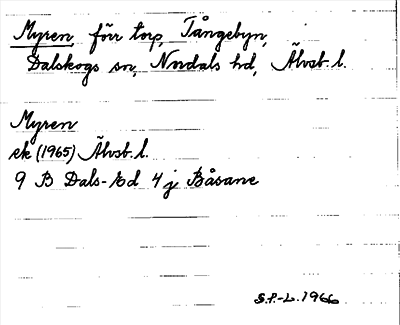 Myren, förr torp, Tångebyn,
Dalskogs sn, Nordals hd, Älvsb. l.
Myren
ek (1965) Älvsb. l.
9 B Dals-Ed 4 j Båsane
S.P.-L. 1966